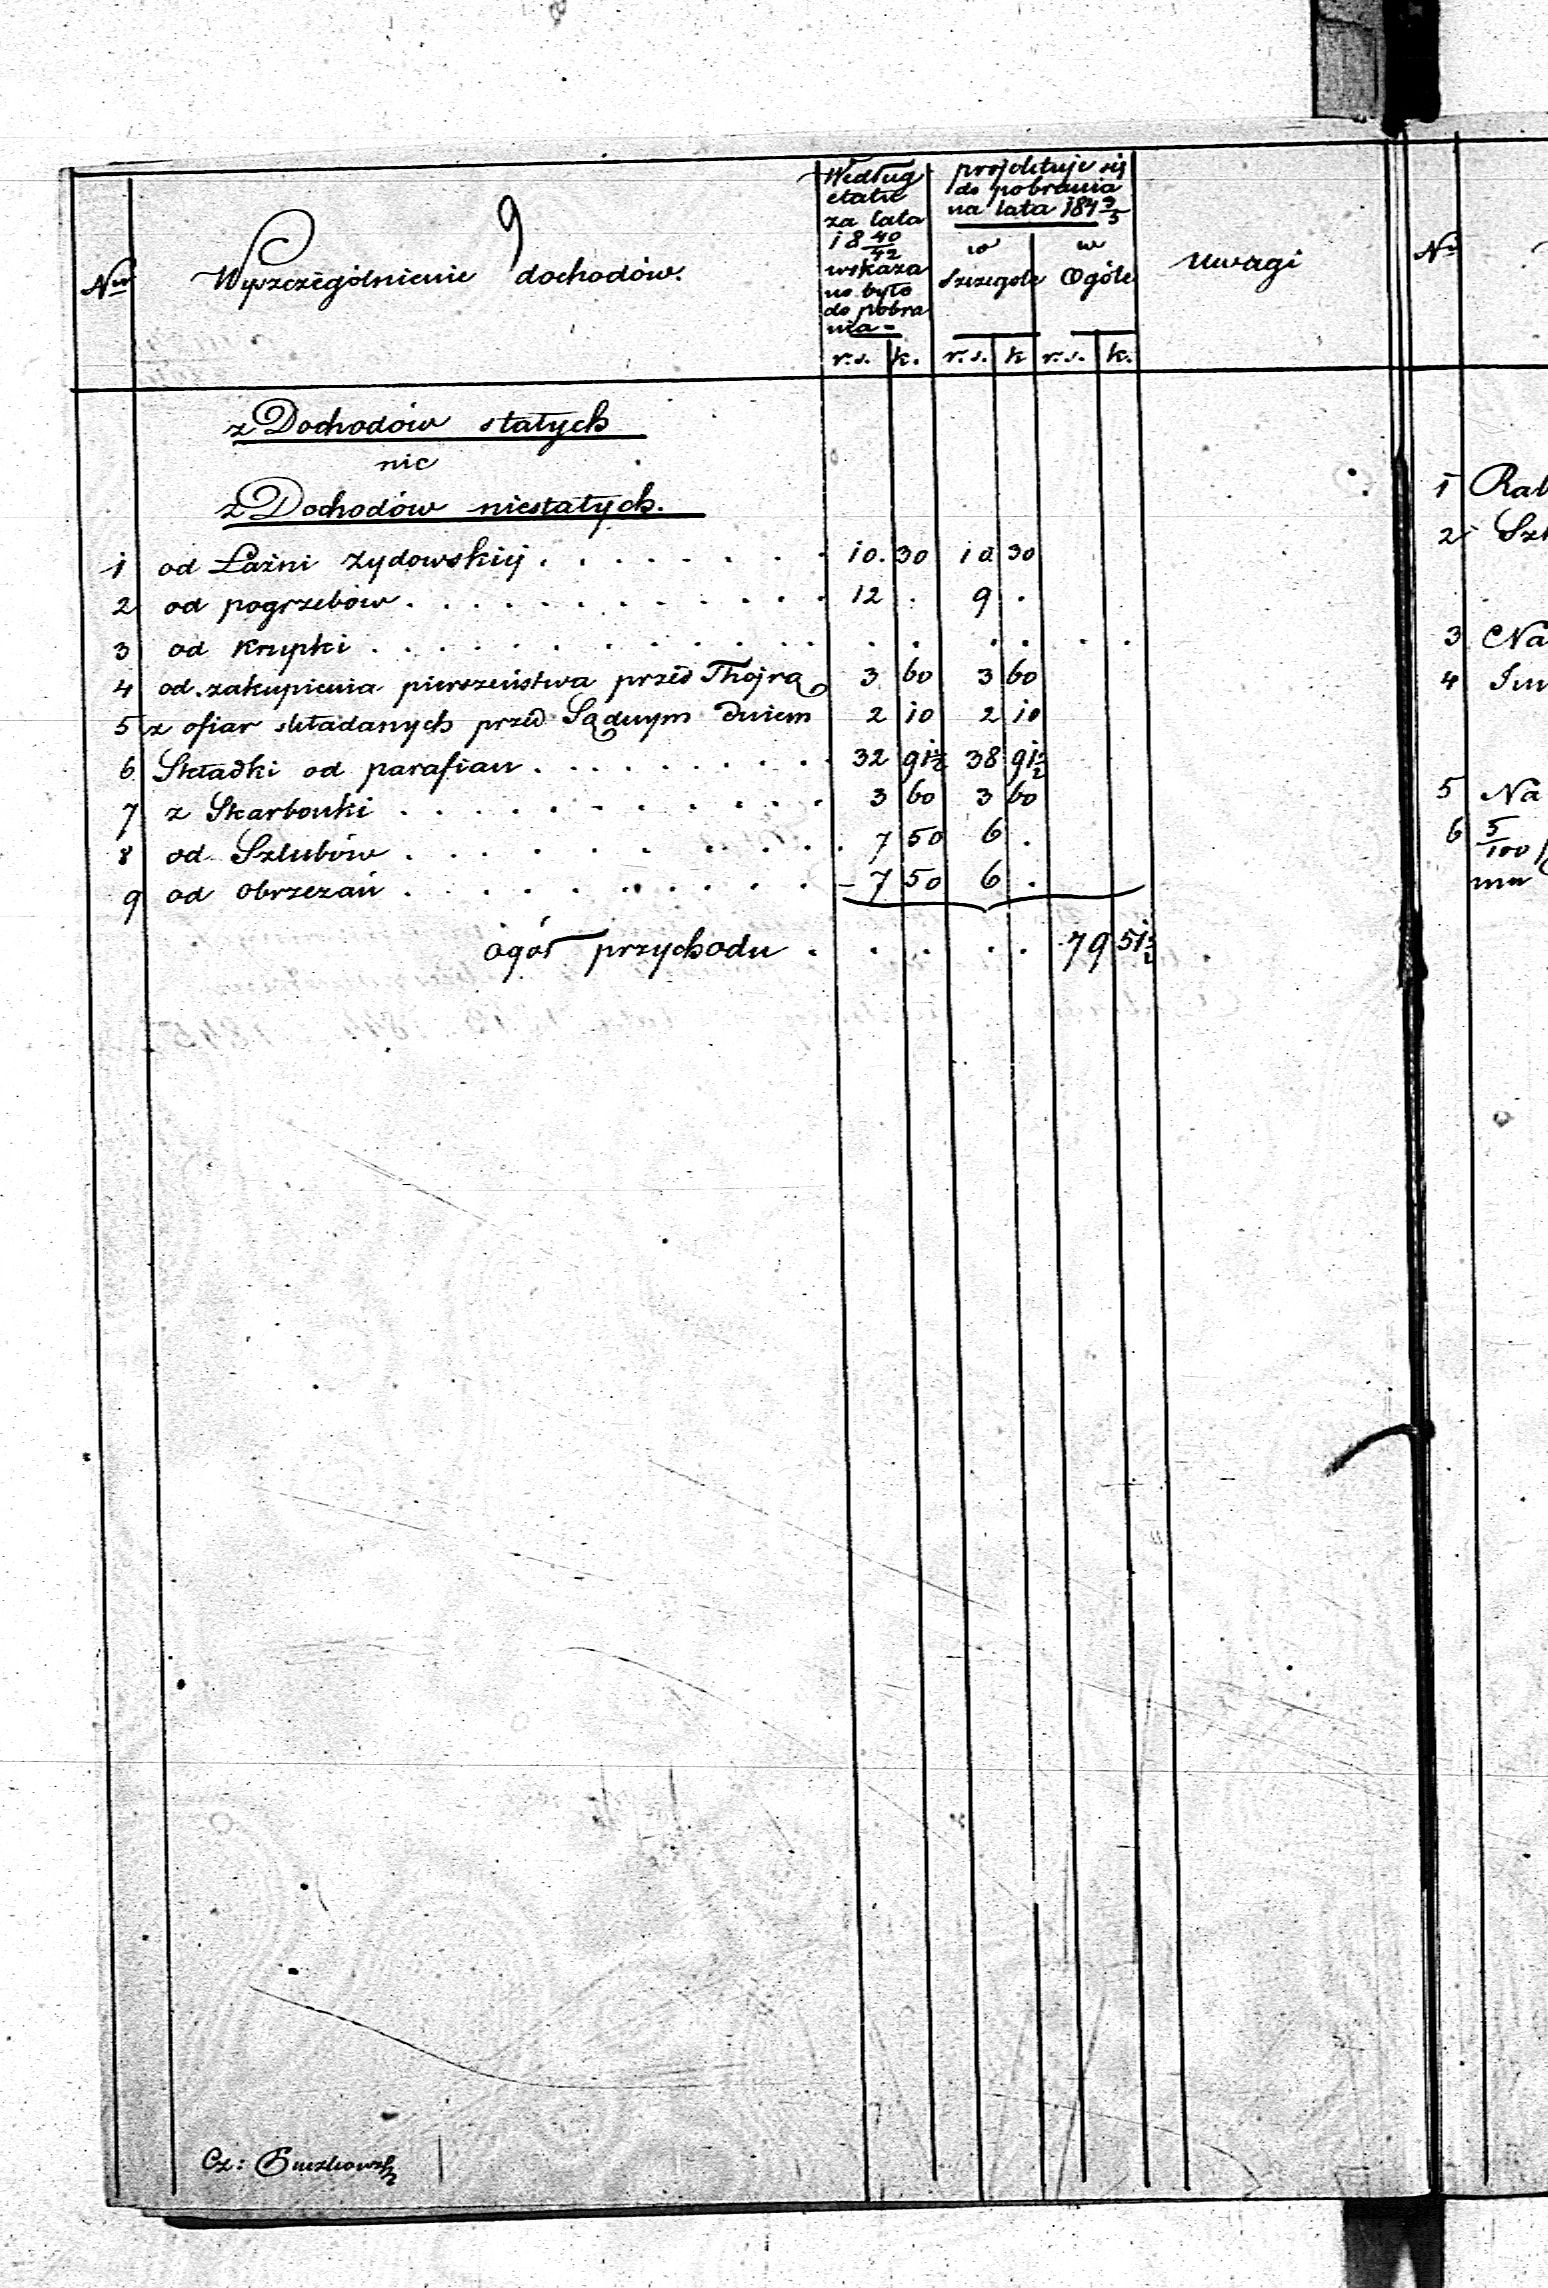 9
Nr Wyszczególnienie dochodów. Według etatu za lata 18 40/42 wskaza no było do pobra nia - projektuje się do pobrania na lata 184 3/5 Uwagi Nr
w Szczególe w Ogóle
r.s. k. r.s. k r.s. k.
z Dochodów stałych
nic
z Dochodów niestałych.
1 od Łaźni żydowskiej 10. 30 10 30
2 od pogrzebów 12 . 9 .
3 od Krupki . . . . . .
4 od zakupienia pierszeństwa przed Thojrą 3 60 3 60
5 z ofiar składanych przed Sądnym Dniem 2 10 2 10
6 Składki od parafian 32 91½ 38 91½
7 z Skarbonki 3 60 3 60
8 od Szlubów 7 50 6 .
9 od obrzezań 7 50 6 .
ogół przychodu . . . . . 79 51½
Cz:
1
2
3 Na
4
5 Na
6 5/100